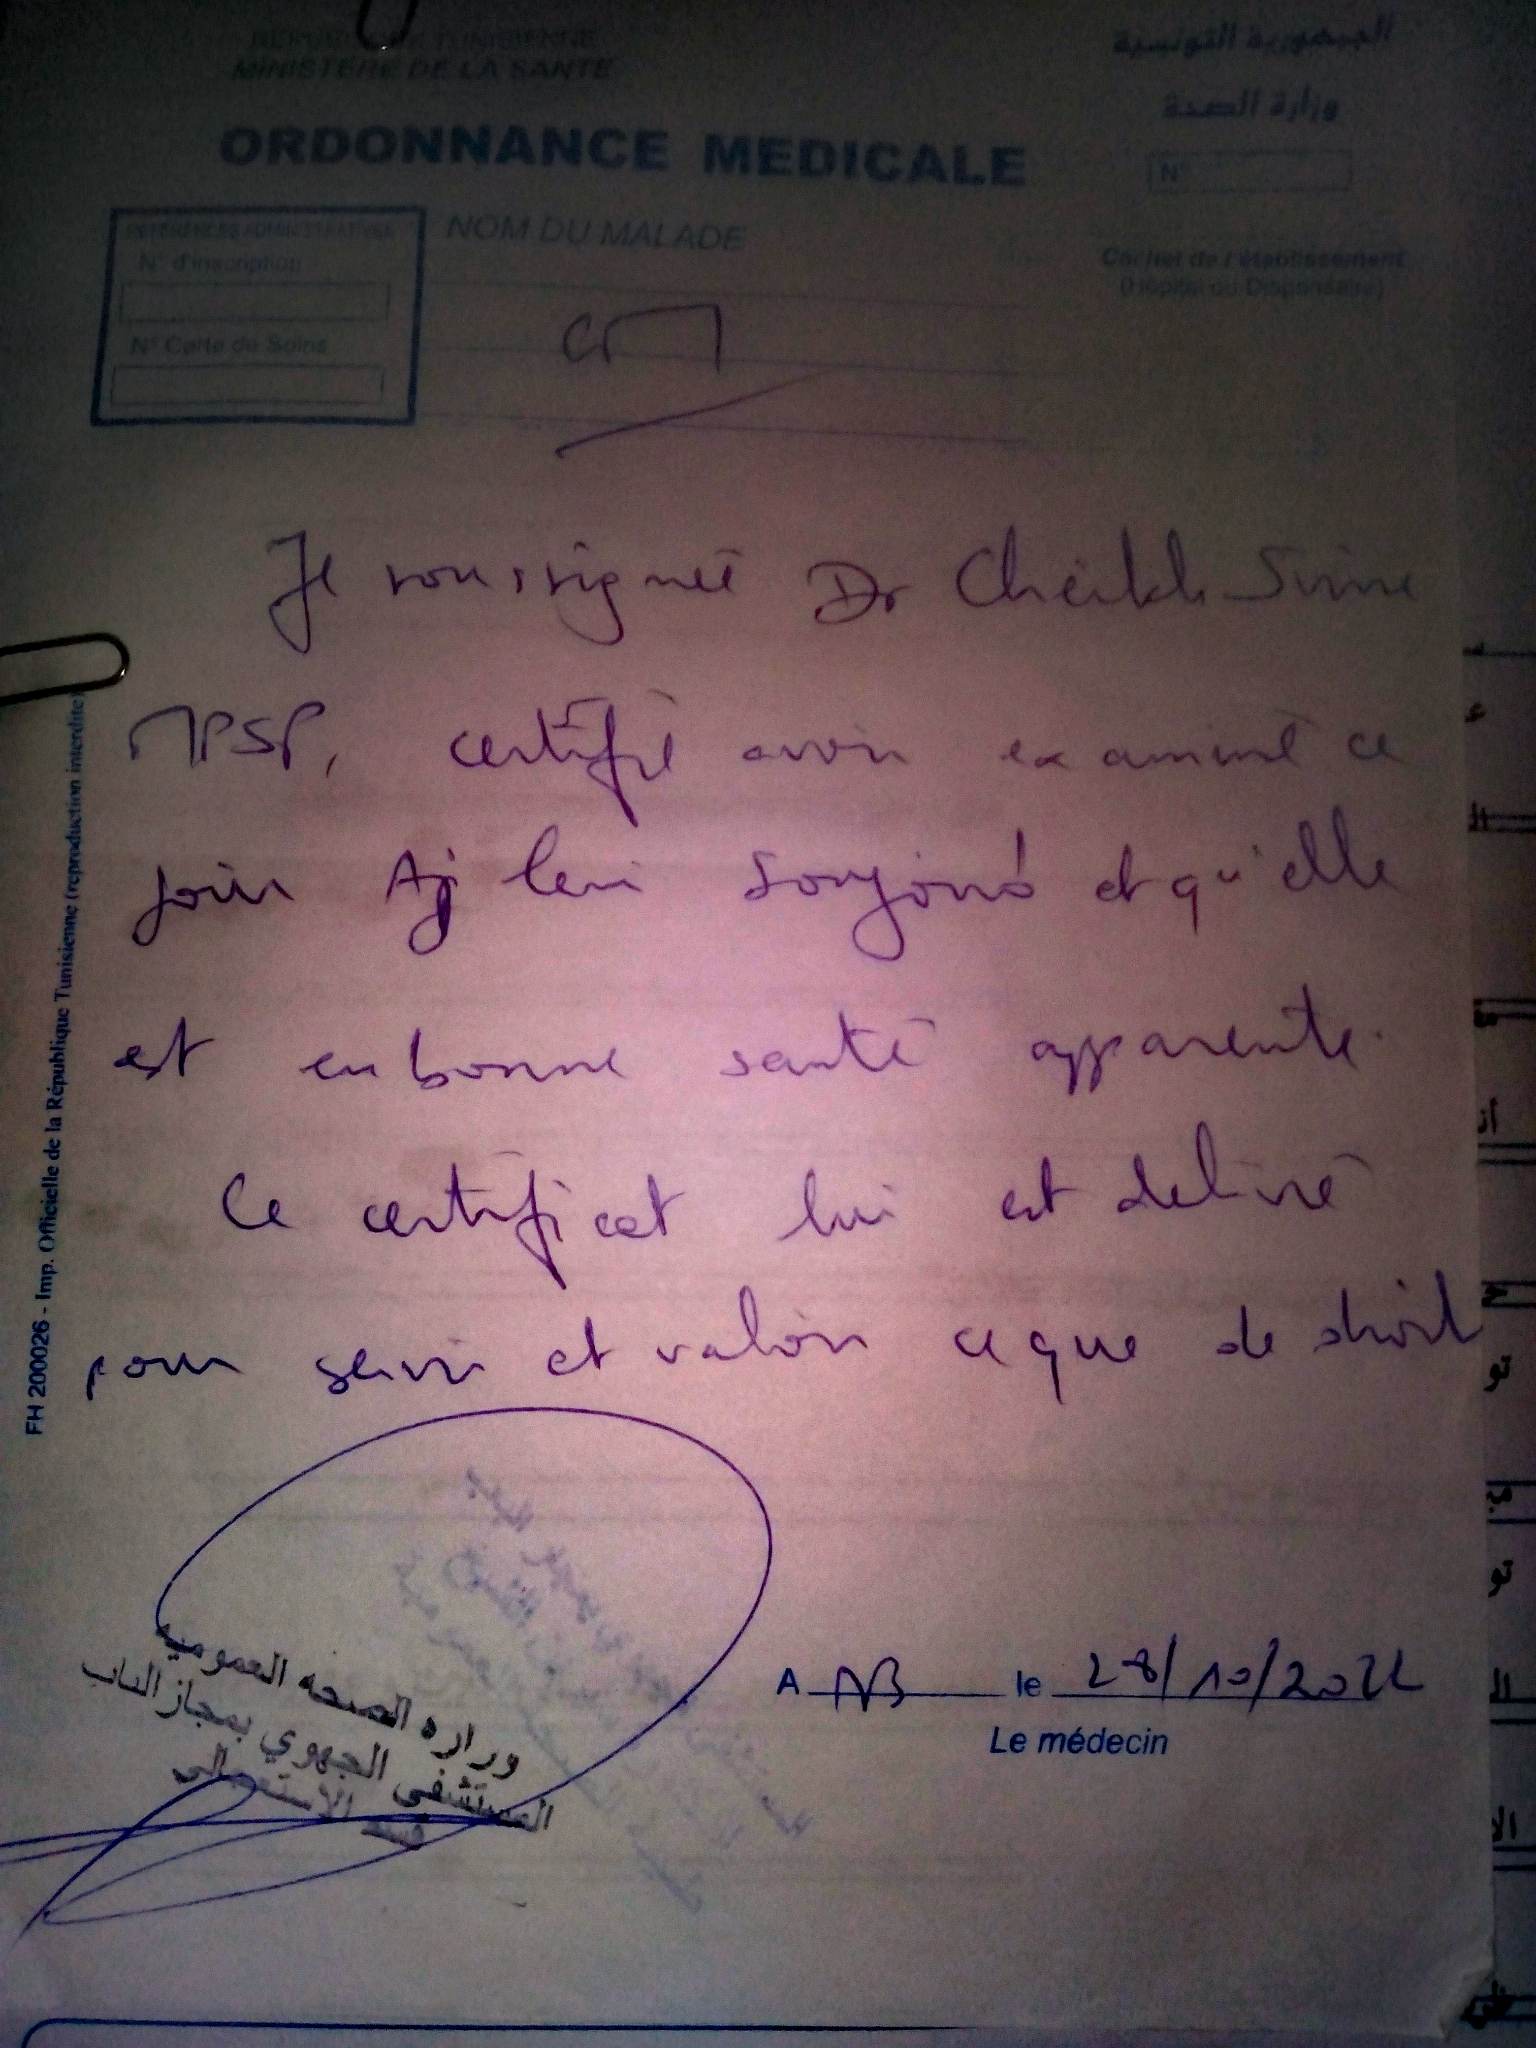 REPUBLIQUE TUNISIENNE
MINISTERE DE LA SANTE
الجمهورية التونسية
وزارة الصحة
ORDONNANCE MEDICALE
N°
REFERENCES ADMINISTRATIVES
N° d'inscription
N° Carte de Soins
NOM DU MALADE
Cachet de l'établissement
(Hôpital ou Dispensaire)
CM
Je soussigné Dr Cheikh
MPSP, certifié avoir examiné ce
jour et qu'elle
est en bonne santé apparente.
Ce certificat lui est delivré
pour servir et valoir ce que de droit
FH 200026 - Imp. Officielle de la République Tunisienne (reproduction interdite)
وزارة الصحة العمومية
المستشفى الجهوي بمجاز الباب
قسم الاستعجالي
A MB le 28/10/2022
Le médecin